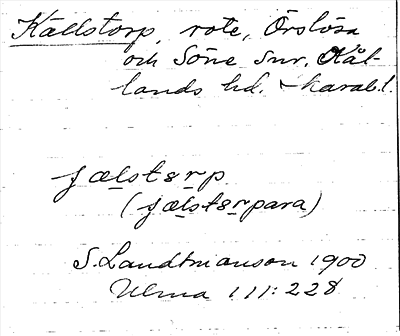 Källstorp, rote, Örslösa
och Söne snr. Kål-
lands hd. Skarab.l.
fælstsrp
(fælstsrpara)
S. Landtmanson 1900
Ulma 111:228